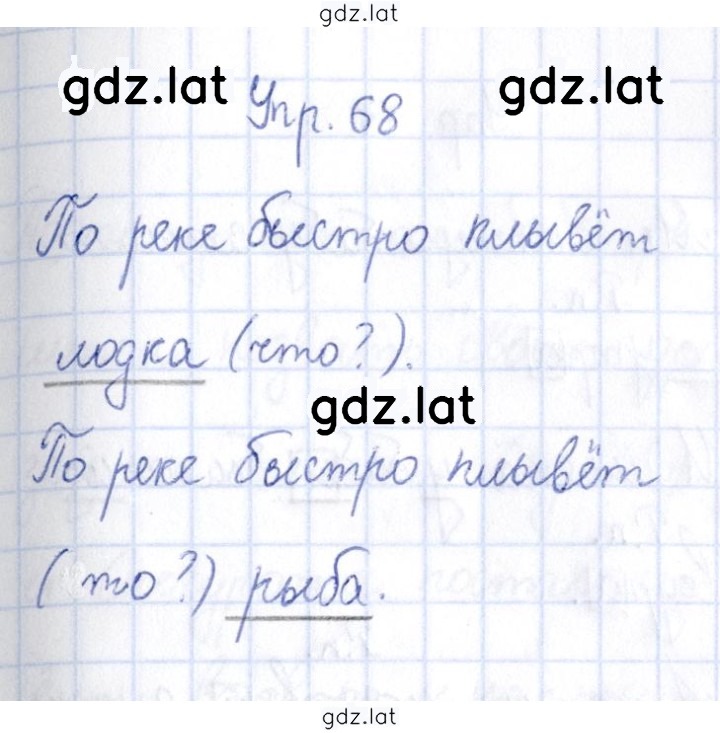 gdz.lat
gdz.lat gdz.lat
Упр. 68
По реке быстро плывёт
лодка (что?).
gdz.lat
По реке быстро плывёт
( то?) рыба.
gdz.lat